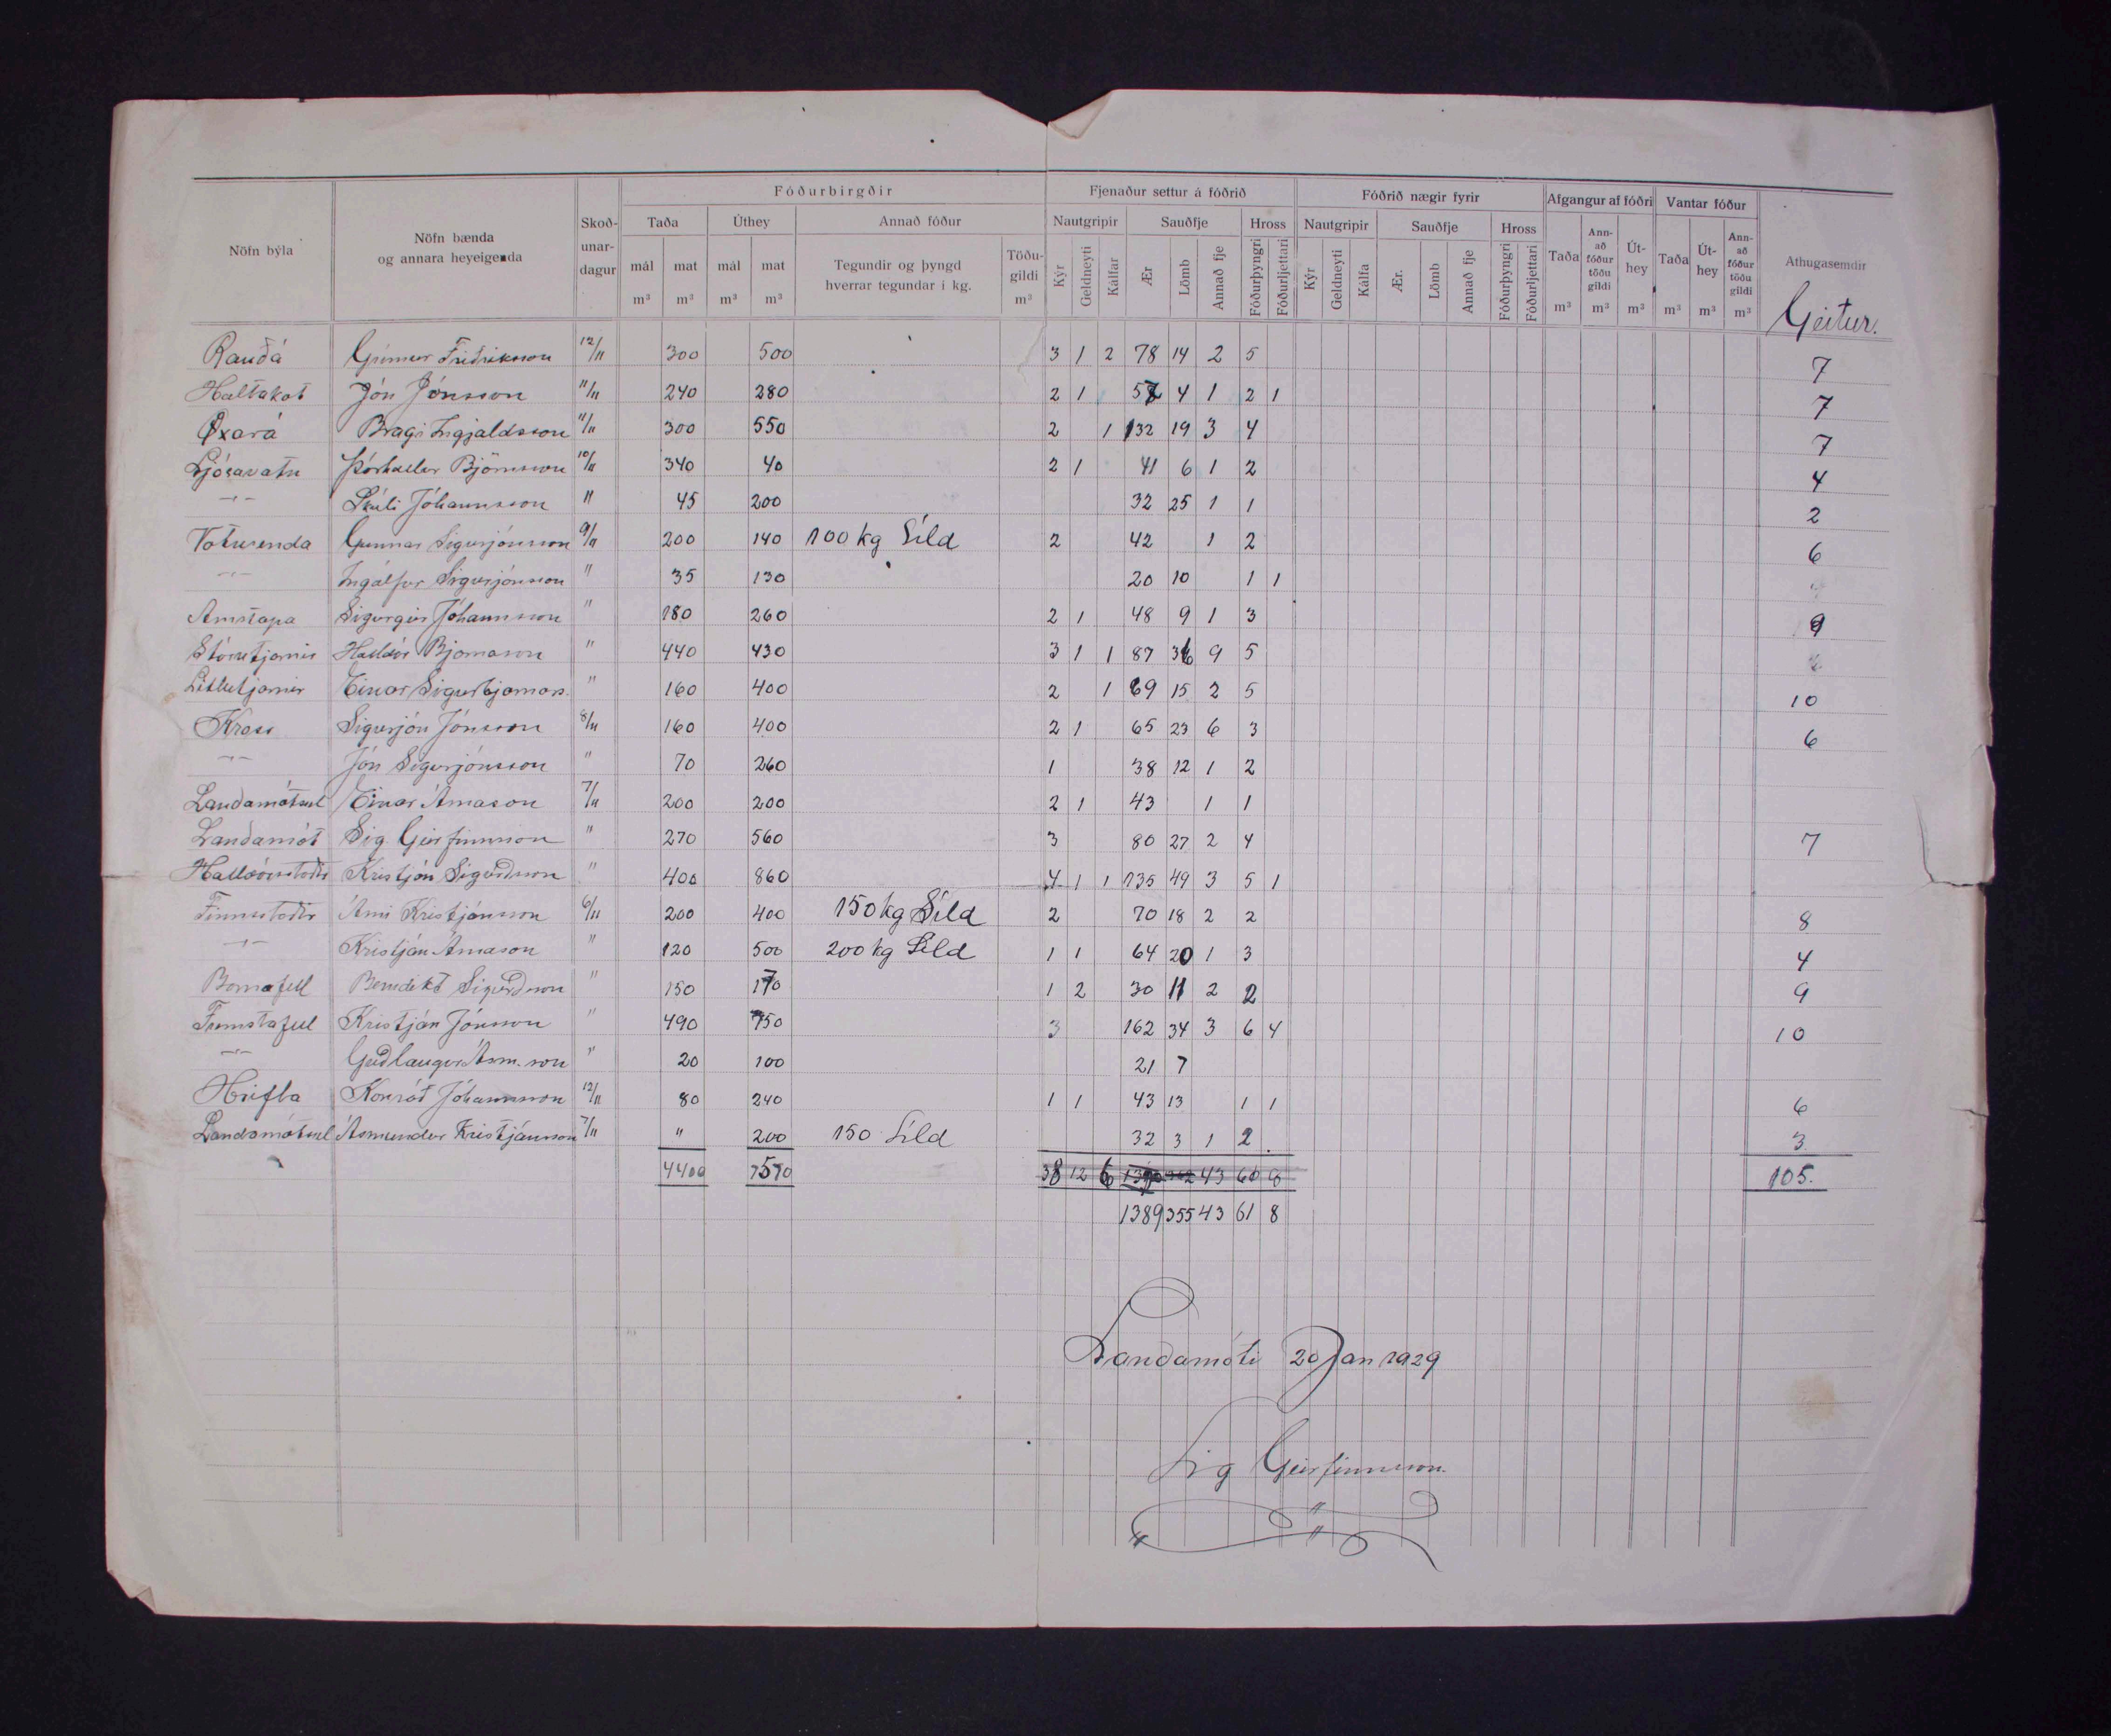 Fóðurbirgðir Fjenaður settur á fóðrið Fóðrið nægir fyrir Afgangur af fóðri Vantar fóður
Nöfn býla Nöfn bænda og annara heyeigenda Skoð-unar-dagur Taða Úthey Annað fóður Nautgripir Sauðfje Hross Nautgripir Sauðfje Hross Taða Ann-að fóður töðu gildi Út-hey Taða Út-hey Ann-að fóður töðu gildi Athugasemdir
mál mat mál mat Tegundir og þyngd hverrar tegundar í kg. Töðu-gildi Kýr Geldneyti Kálfar Ær Lömb Annað fje Fóðurþyngri Fóðurljettari Kýr Geldneyti Kálfa Ær. Lömb Annað fje Fóðurþyngri Fóðurljettari
m³ m³ m³ m³ m³ m³ m³ m³ m³ m³ m³ Geitur.
Rauðá Grímur Friðriksson 12/11 300 500 3 1 2 78 14 2 5 7
Holtakot Jón Jónsson 11/11 240 280 2 1 4 1 2 1 7
Öxará Bragi Ingjaldsson 11/11 300 550 2 1 132 19 3 4 7
Ljósavatn Þórhallur Björnsson 10/11 340 40 2 1 41 6 1 2 4
-"- Skúli Jóhannsson " 45 200 32 25 1 1 2
Gunnar Sigurjónsson 9/11 200 140 100 kg Síld 2 42 1 2 6
-"- Ingólfur Sigurjónsson " 35 130 20 10 1 1
Arnstapa Sigurgeir Jóhannsson " 180 260 2 1 48 9 1 3 9
Stórutjarnir Halldór Bjarnason " 440 430 3 1 1 87 36 9 5
Litlutjarnir Einar Sigurbjarnars. " 160 400 2 1 69 15 2 5 10
Kross Sigurjón Jónsson 8/11 160 400 2 1 65 23 6 3 6
-"- Jón Sigurjónsson " 70 260 1 38 12 1 2
Landamótssel Einar Árnason 7/11 200 200 2 1 43 1 1
Landamót Sig. Geirfinnsson " 270 560 3 80 27 2 4 7
Hallsdórsstaðir Kristján Sigurðsson " 400 860 4 1 1 135 49 3 5 1
Finnsstaðir Árni Kristjánsson 6/11 200 400 150 kg Síld 2 70 18 2 2 8
-"- Kristján Árnason " 120 500 200 kg Síld 1 1 64 20 1 3 4
Benedikt Sigurðsson " 150 170 1 2 30 11 2 2 9
Fremstafell Kristján Jónsson " 490 750 3 162 34 3 6 4 10
-"- Guðlaugur Ásm.son " 20 100 21 7
Hrifla Konráð Jóhannsson 12/11 80 240 1 1 43 13 1 1 6
Landamótssel Ásmundur Kristjánsson 7/11 " 200 150 Síld 32 3 1 2 3
4400 7570 38 12 6 43 60 8 105.
1389 355 43 61 8
Landamóti 20 Jan 1929
Sig Geirfinnsson.